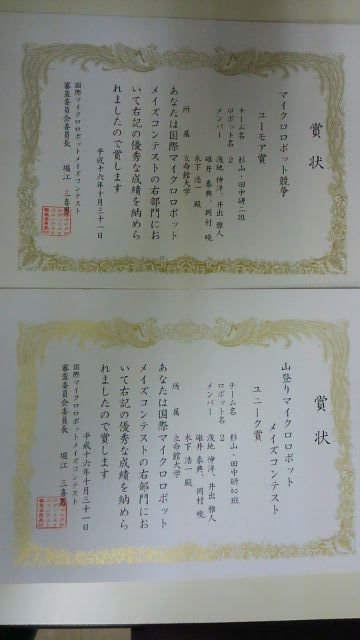 賞状
マイクロロボット競争
ユーモア賞
チーム名　杉山・田中研二班
ロボット名　2
メンバー　浅地 伸洋、井出 雅人
碓井 泰典、岡村 暁
木下 浩一 殿
所属　立命館大学
あなたは国際マイクロロボット
メイズコンテストの右部門にお
いて右記の優秀な成績を納めら
れましたので賞します
平成十六年十月三十一日
国際マイクロロボットメイズコンテスト
審査委員会委員長　堀江 三喜男
賞状
山登りマイクロロボット
メイズコンテスト
ユニーク賞
チーム名　杉山・田中研02班
ロボット名　2
メンバー　浅地 伸洋、井出 雅人
碓井 泰典、岡村 暁
木下 浩一 殿
所属　立命館大学
あなたは国際マイクロロボット
メイズコンテストの右部門にお
いて右記の優秀な成績を納めら
れましたので賞します
平成十六年十月三十一日
国際マイクロロボットメイズコンテスト
審査委員会委員長　堀江 三喜男